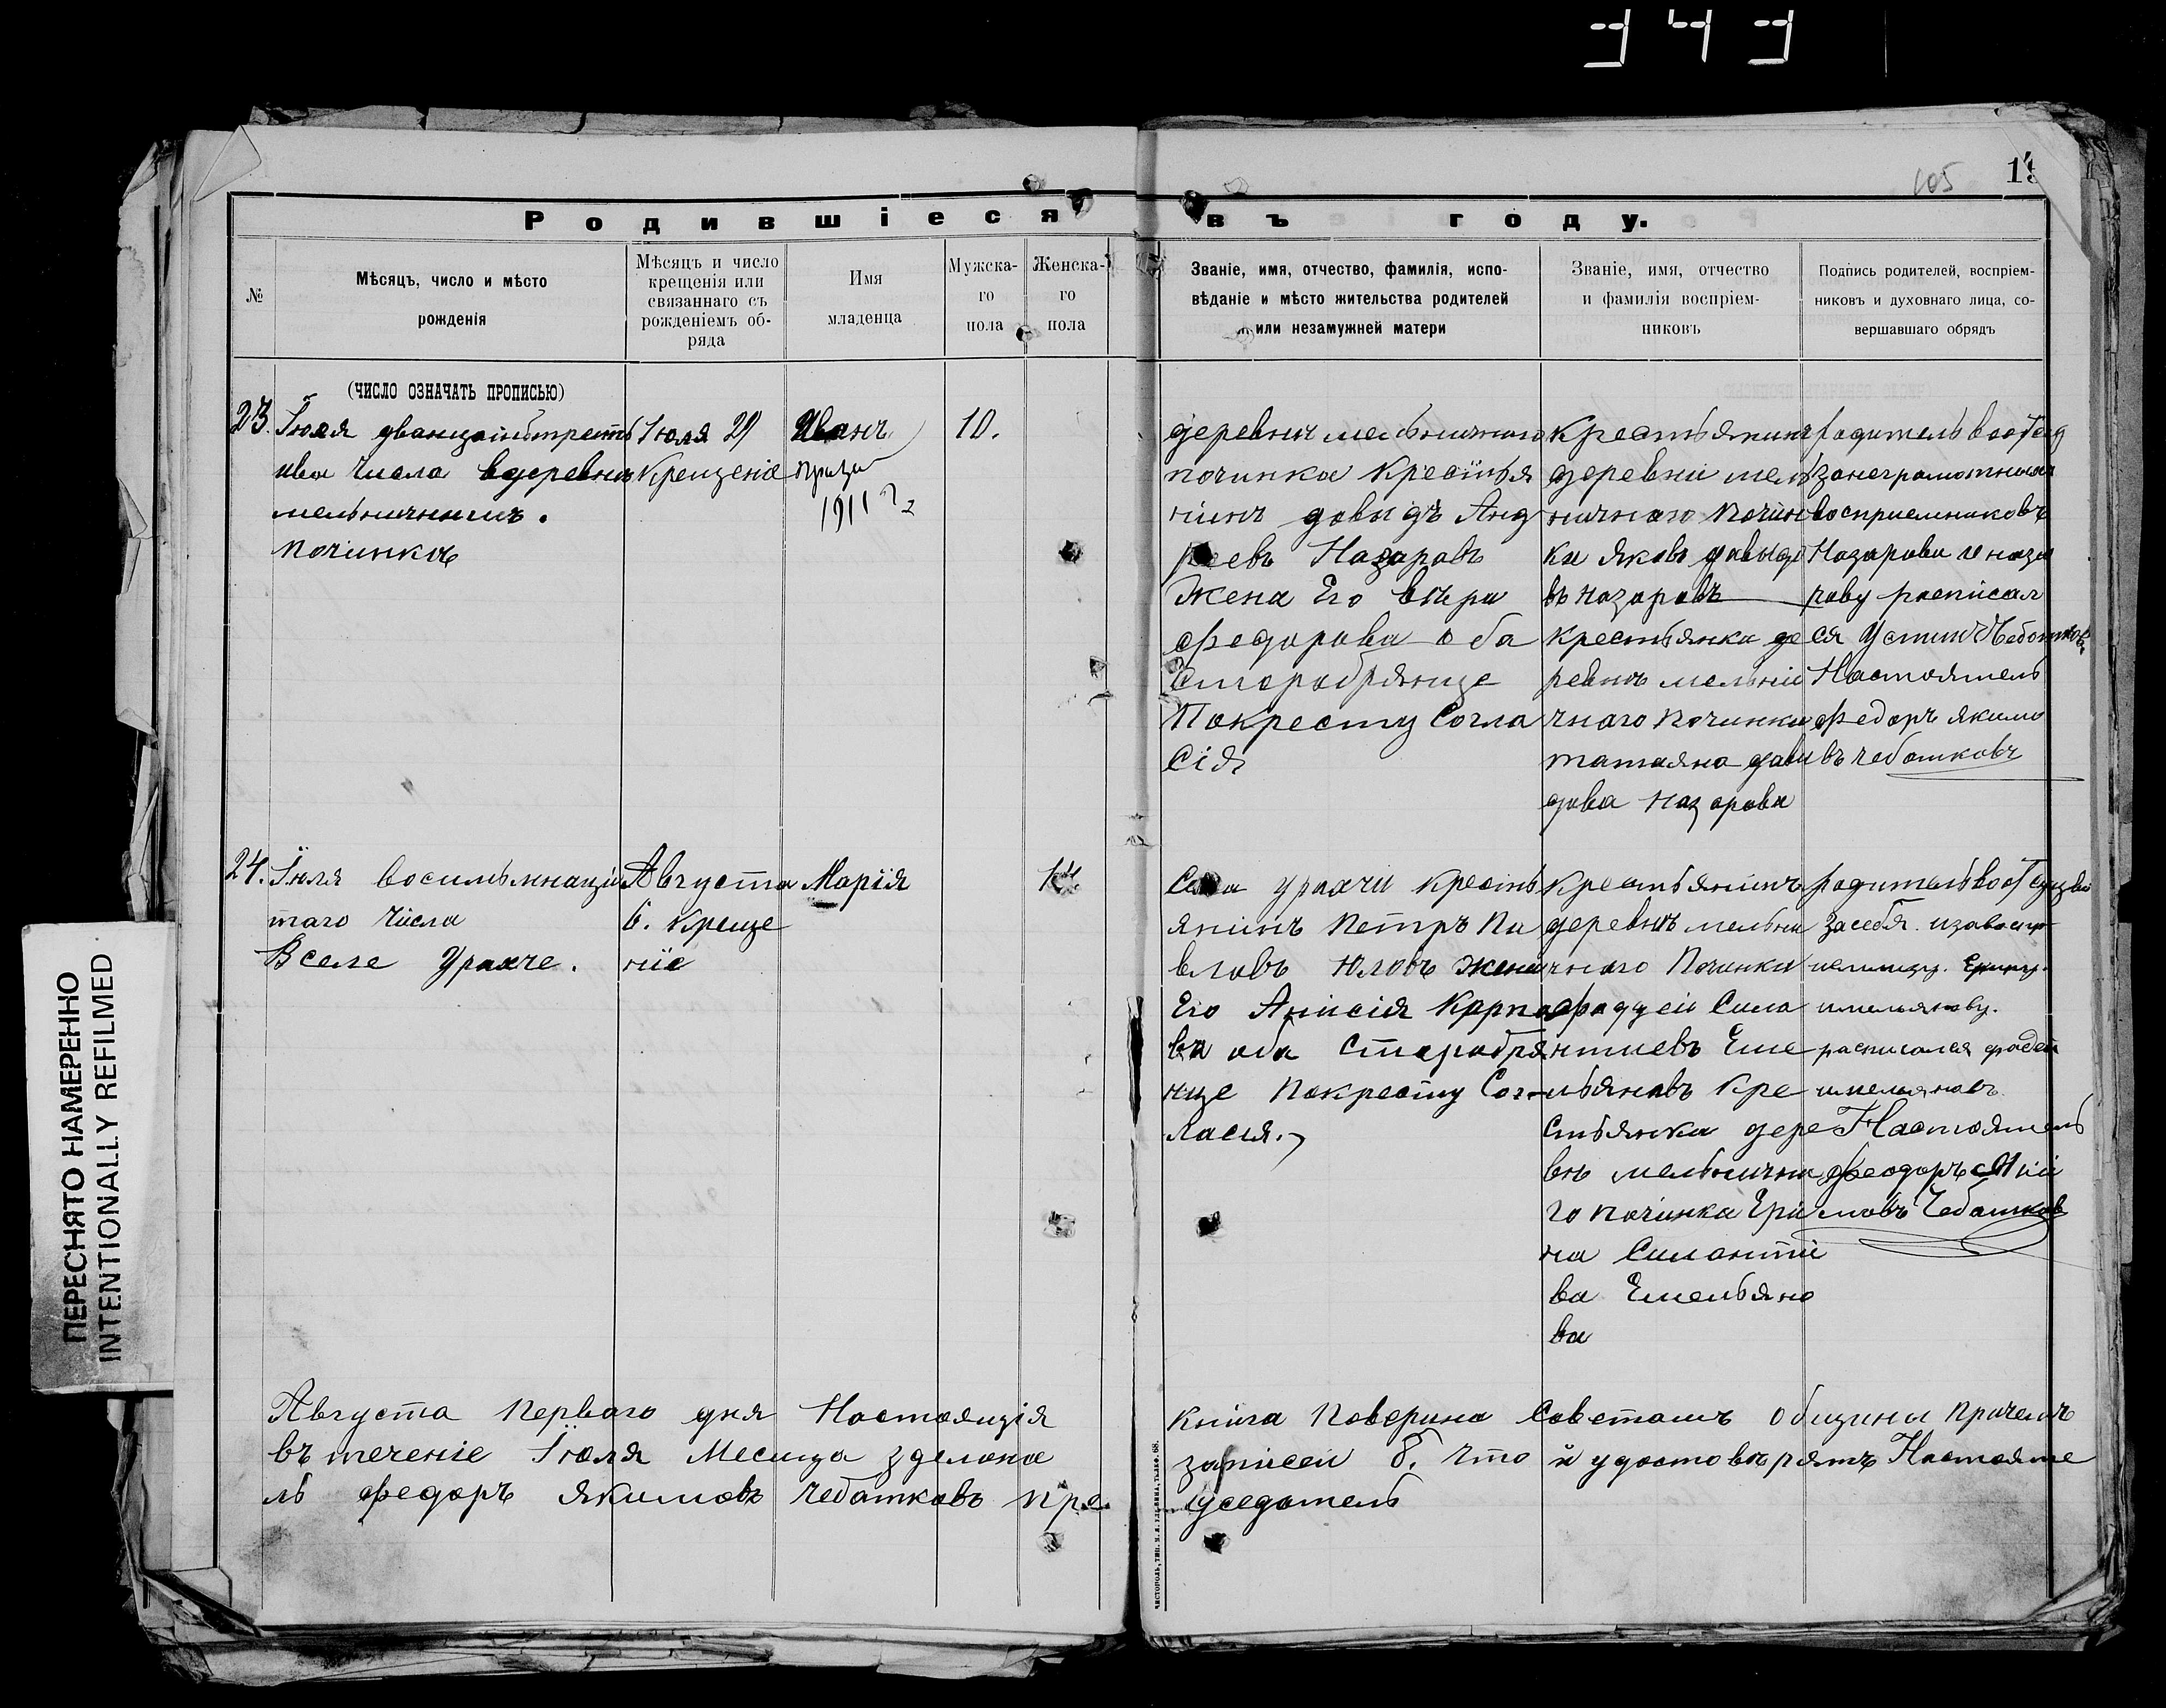 343
105
Родившіеся въ году.
№
Мѣсяцъ, число и мѣсто
рожденія
Мѣсяцъ и число
крещенія или
связаннаго съ
рожденіемъ об-
ряда
Имя
младенца
Мужска-
го
пола
Женска-
го
пола
Званіе, имя, отчество, фамилія, испо-
вѣданіе и мѣсто жительства родителей
или незамужней матери
Званіе, имя, отчество
и фамилія воспріем-
никовъ
Подпись родителей, воспріем-
никовъ и духовнаго лица, со-
вершавшаго обрядъ
(ЧИСЛО ОЗНАЧАТЬ ПРОПИСЬЮ)
23.
Іюля
ива числа вдеревнѣ
мельничнымъ.
починкѣ
Іюля 29
Крещеніе
Иванъ
1911
10.
деревни мельничнаго
починка Крестья
нинъ довыдъ Анд
реевъ Назаровъ
Жена Его вѣра
Федорова оба
Старобрянце
Покресту Согла
Сія
Крестьянинъ
деревни мель
ничнаго Почин
ка Яковъ давыдо
въ Назаровъ
Крестьянка де
ревнѣ мельни
чнаго Починка
татаяна давы
дова Назарова
родитель
занеграмотных
восприемниковъ
Назарова и наза
рову росписал
ся Устин Чеботковъ
Настоятель
Федоръ якимо
въ чебатковъ
24.
Іюля восимьмнацы
таго Числа
Вселе Урахче.
Августа
6. Креще
ніе
Марія
14.
Села Урахчи Кресть
янинъ Петръ Па
вловъ Юловъ Жена
Его Анисія Карпо
ва оба Старобря
нце Покресту Сог
ласия.
Крестьянинъ
деревнѣ мельни
чнаго Починка
Фаддей Сила
нтиевъ Еме
льяновъ Кре
стьянка дере
внѣ мельнична
го починка Ири
на Силантие
ва Емельяно
ва
родитель
засебя
имельянову.
расписался фадей
имельяновъ
Настоятель
Феодоръ Яки
мовъ Чебатков
Августа Перваго дня Настоящія Книга Поверина Советомъ общины Причемъ
въ теченіе Іюля Месица зделона записей 8. что и удостовѣрятъ Настояте
ль Федоръ Якимовъ Чебатковъ пре
дседатель
ПЕРЕСНЯТО НАМЕРЕННО
INTENTIONALLY REFILMED